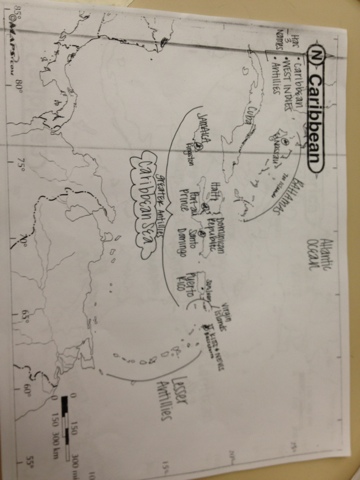 N Caribbean
HAS 3 NAMES
• Caribbean
• WEST INDIES
• Antilles
Atlantic Ocean
BAHAMAS
NASSAU
Cuba
JAMAICA
Kingston
Haiti
Port-au-Prince
Dominican Republic
Santo Domingo
Puerto Rico
San Juan
Virgin Islands
Greater Antilles
Caribbean Sea
Lesser Antillies
80°
75°
70°
65°
60°
55°
15°
10°
0 150 300 mi
0 150 300 km